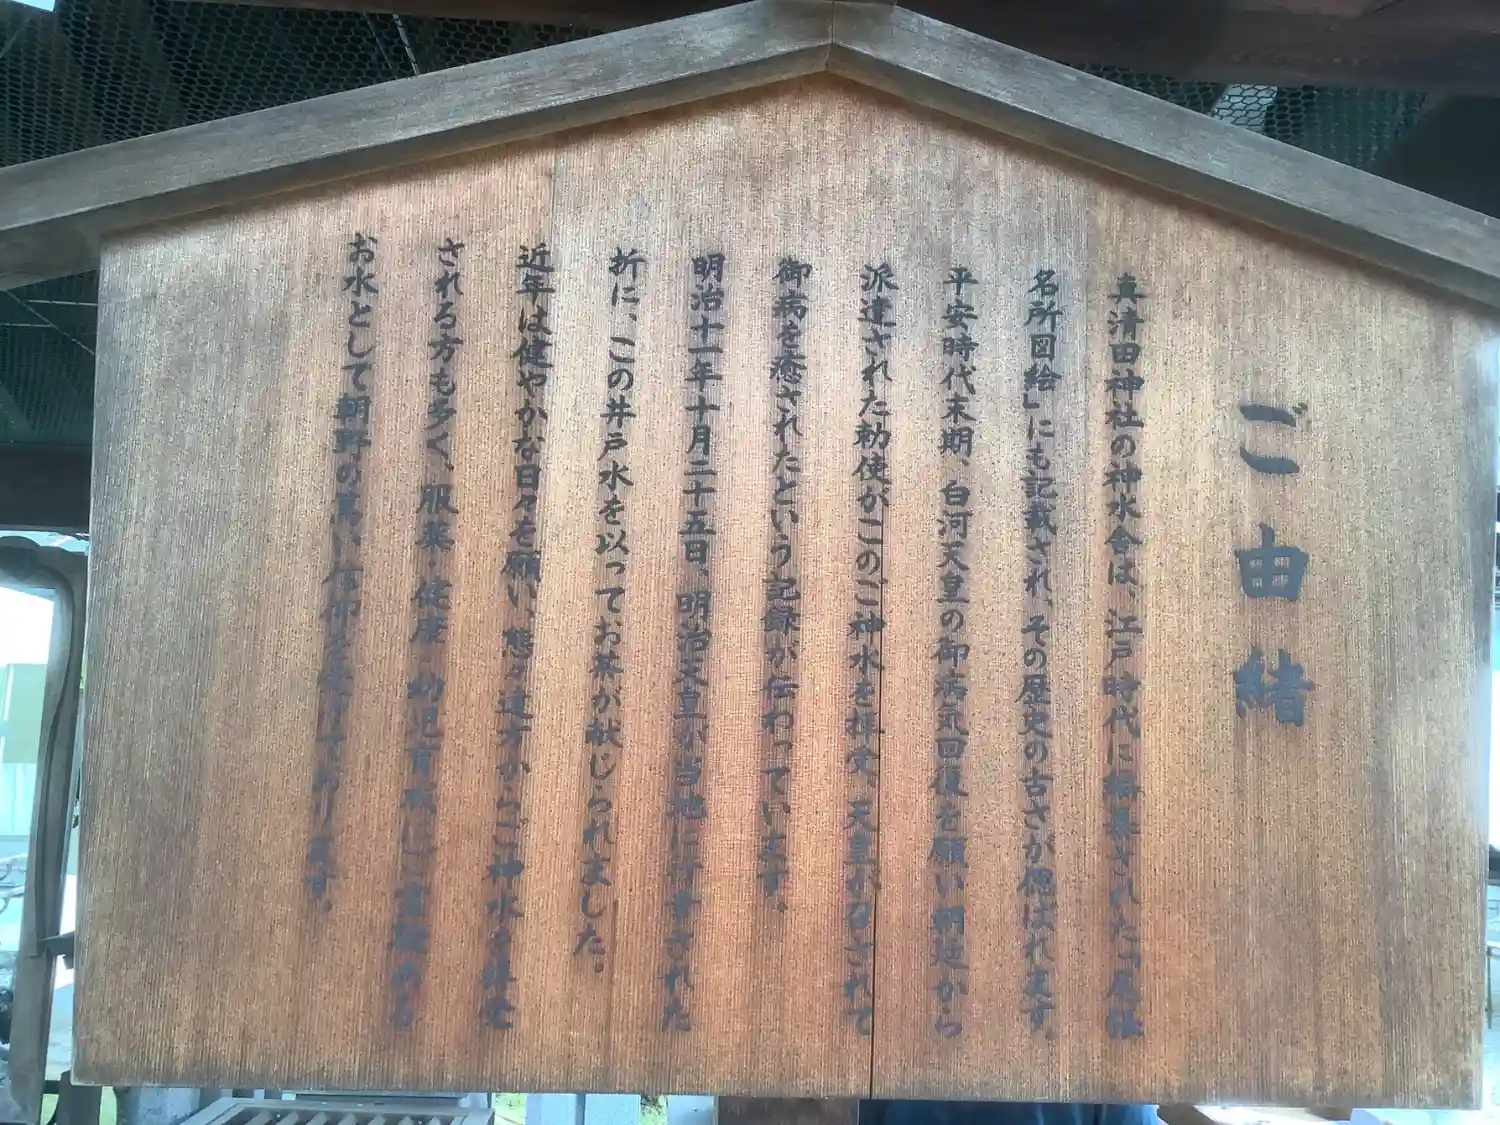 ご由緒
真清田神社の神水舎は、江戸時代に編纂された「尾張
名所図絵」にも記載され、その歴史の古さが偲ばれます。
平安時代末期、白河天皇の御病気回復を願い朝廷から
派遣された勅使がこのご神水を拝受、天皇がなされて
御病を癒されたという記録が伝わっています。
明治十一年十月二十五日、明治天皇が当地に行幸された
折に、この井戸水を以ってお茶が献じられました。
近年は健やかな日々を願い、態々遠方からご神水を拝受
される方も多く、服薬・健康・幼児育成にご霊験ある
お水として朝野の篤い信仰を受けております。